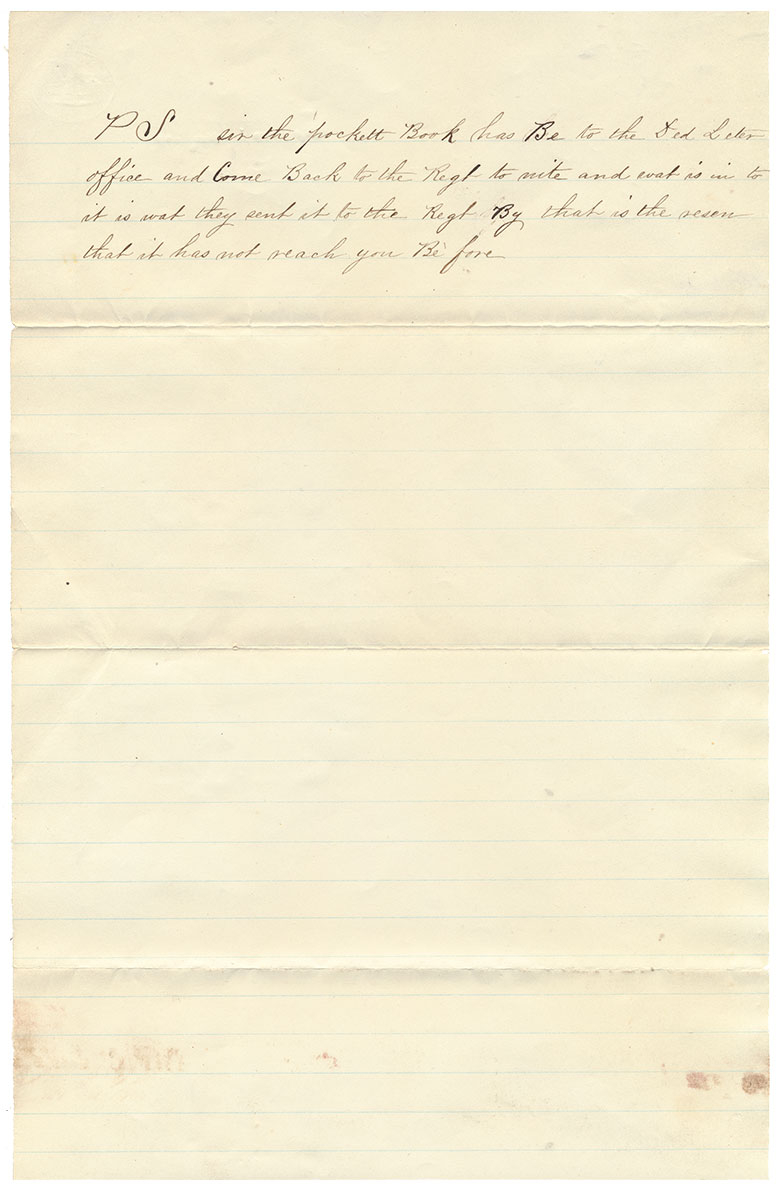 PS sir the pockett Book has Be to the Ded Leter
office and Come Back to the Regt to nite and evat is in to
it is wat they sent it to the Regt By that is the resen
that it has not reach you Be fore